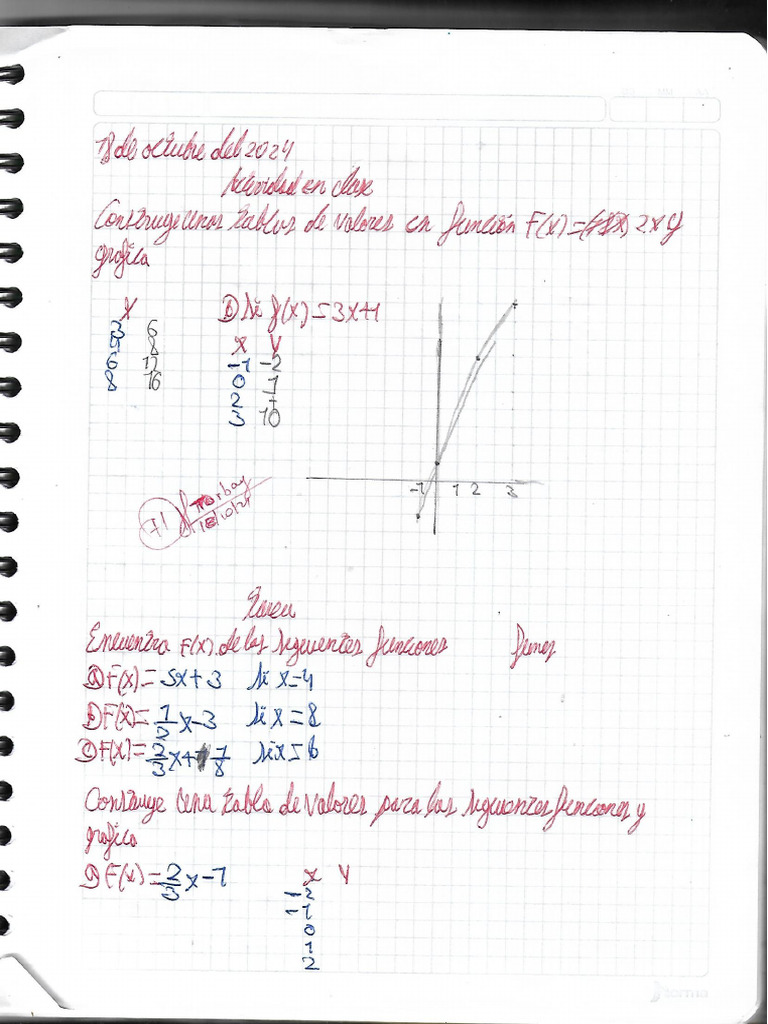 18 de octubre del 2024
Actividad en clase
Construye unas tablas de valores en función F(x)= 2x y
grafica
X
3 6
5 8
6 12
8 16
B) Si f(x)=3x+1
X Y
-1 -2
0 1
2 7
3 10
-1 1 2 3
18/10/24
Tarea
Encuentra F(x). de las siguientes funciones
A) F(x)= 5x+3 si x=4
B) F(x)= 1/2 x-3 si x=8
C) F(x)= 2/3 x+ 1/8 si x=6
Construye una tabla de valores para las siguientes funciones y
grafica
A) F(x)= 2/3 x-1
X Y
-2
-1
0
1
2
norma